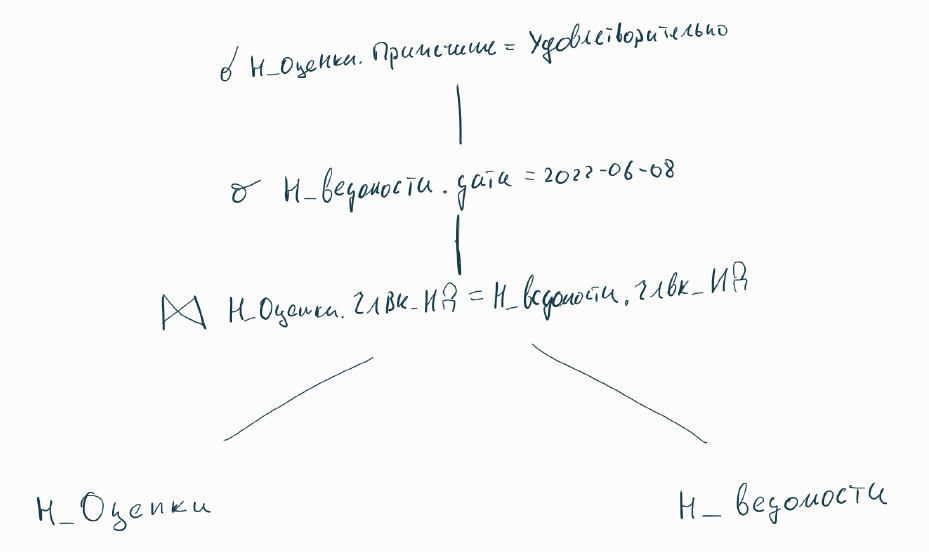 σ Н_Оценки. Примечание = Удовлетворительно
σ Н_ведомости. дата = 2022-06-08
⋈ Н_Оценки. ЧЛВК_ИД = Н_ведомости. ЧЛВК_ИД
Н_Оценки
Н_ведомости